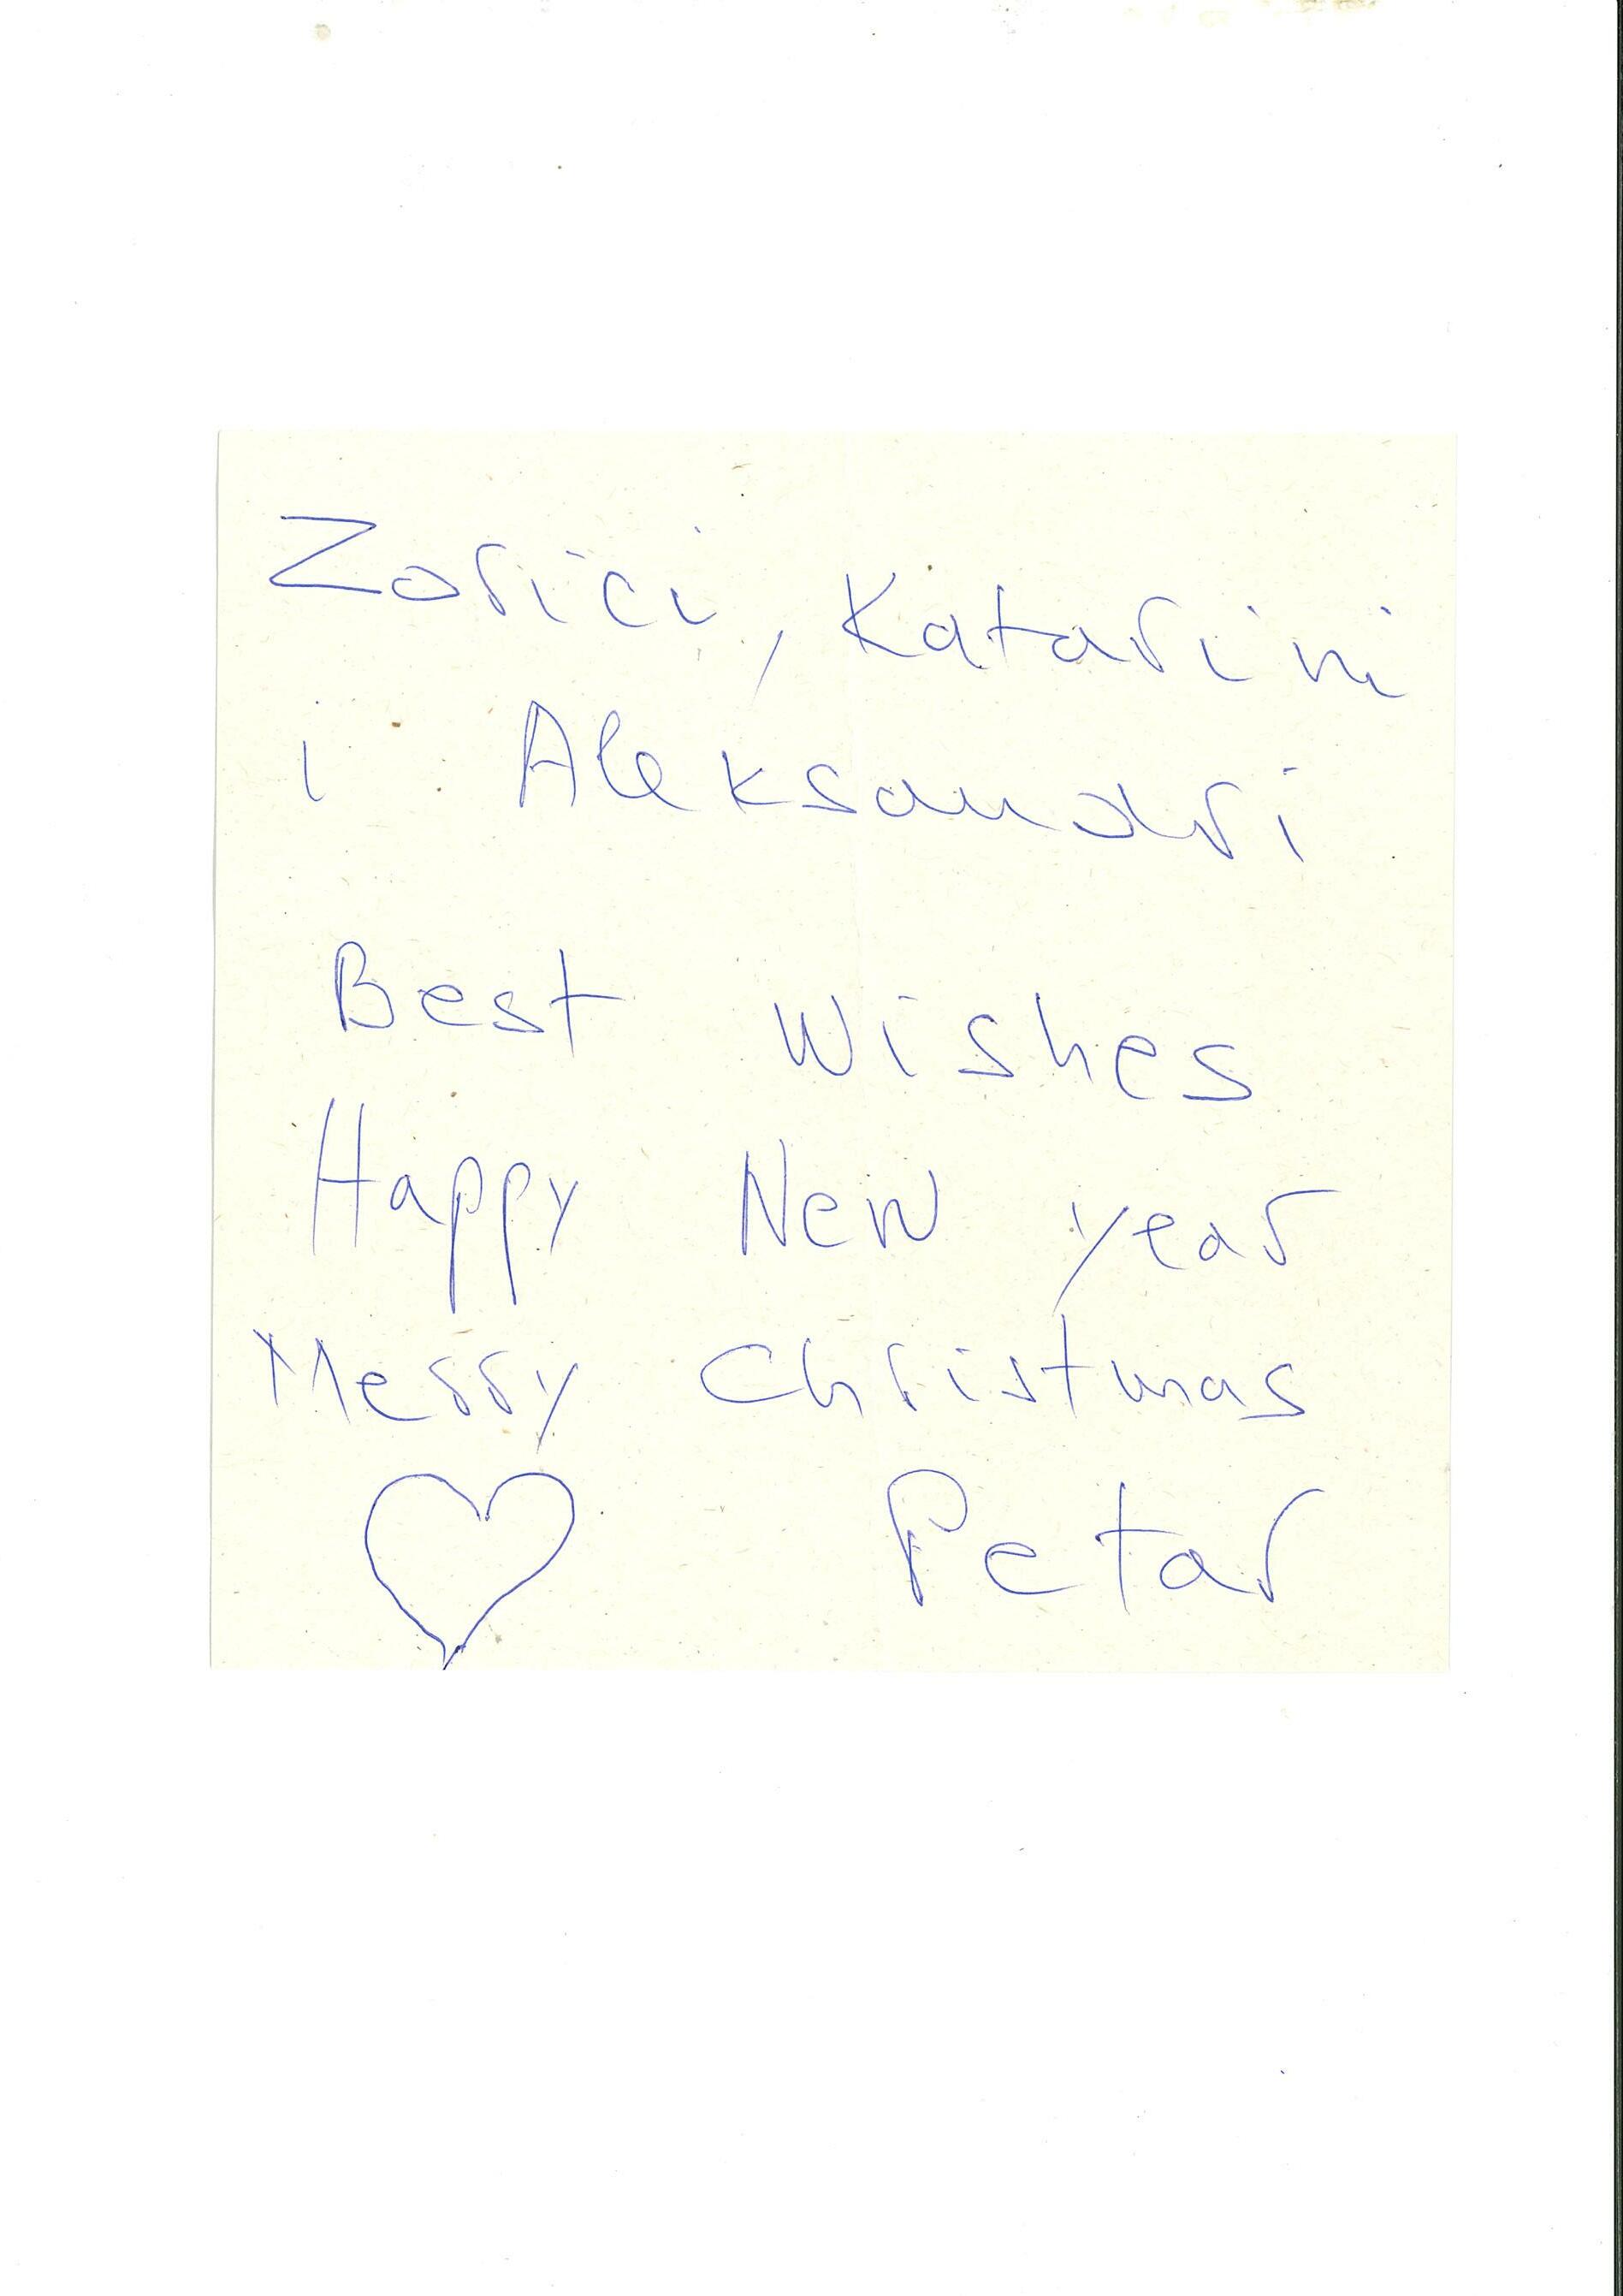 Zorici, Katarini
i Aleksandri
Best Wishes
Happy New year
Merry Christmas
Petar